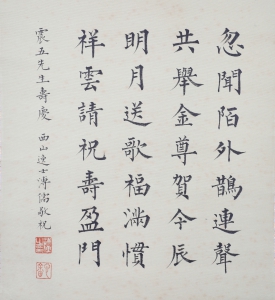 忽聞陌外鵲連聲
共舉金尊賀今辰
明月送歌福滿懷
祥雲請祝壽盈門
震五先生壽慶 西山逸士溥儒敬祝